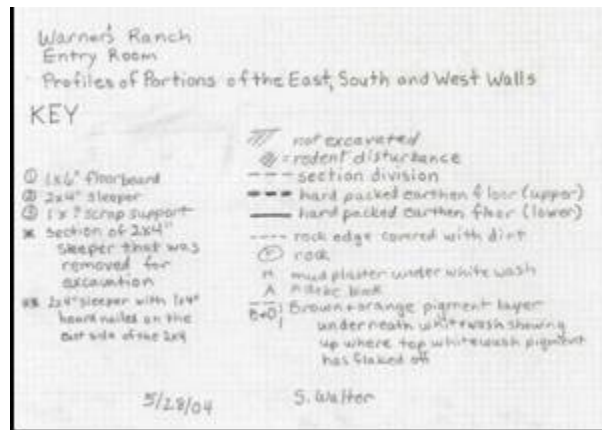 Warner's Ranch
Entry Room
Profiles of Portions of the East, South and West Walls
KEY
① 1x6" floorboard
② 2x4" sleeper
③ 1x? scrap support
* section of 2x4"
sleeper that was
removed for
excavation
** 2x4" sleeper with 1x4"
board nailed on the
east side of the 2x4
not excavated
= rodent disturbance
section division
hard packed earthen floor (upper)
hard packed earthen floor (lower)
rock edge covered with dirt
rock
M mud plaster under white wash
A Adobe block
B+O Brown + orange pigment layer
underneath whitewash showing
up where top whitewash pigment
has flaked off
5/28/04
S. Walter